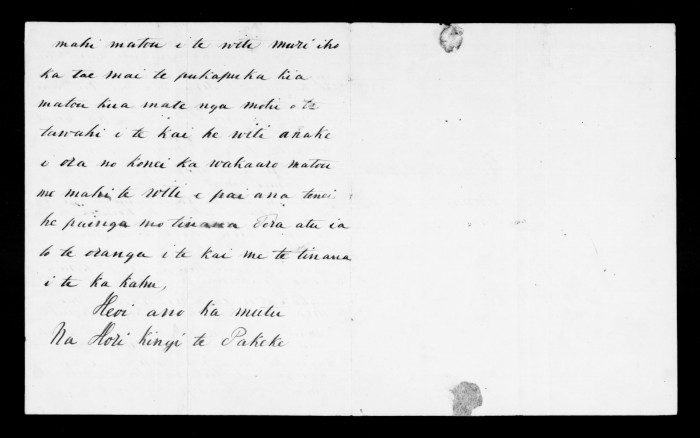 mahi matou i te witi muri iho
ka tae mai te pukapuka kia
matou kua mate nga motu o te
tawahi i te kai he witi anake
i ora no konei ka wahaaro matou
me mahi te witi e pai ana tenei
he painga mo tinana Pera atu ia
to te oranga i te kai me te tinana
i te ka kahu,
Heoi ano ka mutu
Na Hori Kingi te Pakeke